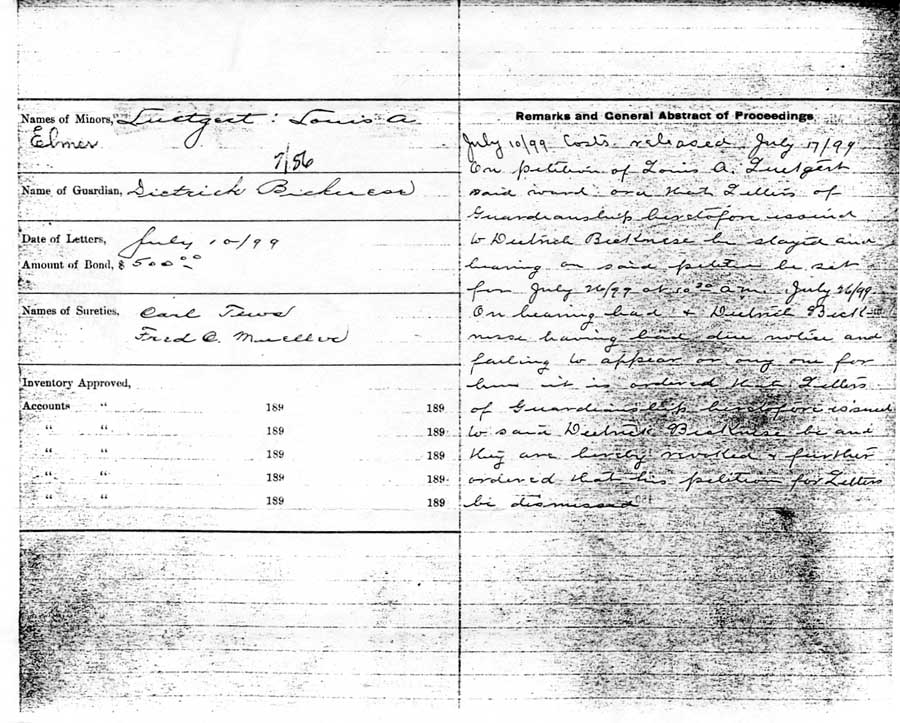 Names of Minors, Luetgert : Louis A
Elmer
7/56
Name of Guardian, Dietrick Bicknese
Date of Letters, July 10/99
Amount of Bond, $ 500.00
Names of Sureties, Carl Tews
Fred C. Mueller
Inventory Approved,
Accounts “ 189 189
“ “ 189 189
“ “ 189 189
“ “ 189 189
“ “ 189 189
Remarks and General Abstract of Proceedings
July 10/99 Costs released July 17/99
On petition of Louis A. Luetgert
said ward ord that Letters of
Guardianship heretofore issued
to Dietrich Bicknese be stayed and
hearing on said petition be set
for July 26/99 at 10 30 a.m. July 26/99
On hearing had & Dietrich Bick-
nese having had due notice and
failing to appear or any one for
him it is ordered that Letters
of Guardianship heretofore issued
to said Dietrich Bicknese be and
they are hereby revoked & further
ordered that his petition for Letters
be dismissed